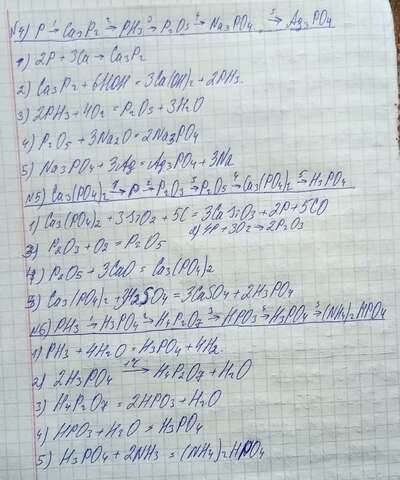 №4) P →¹ Ca₃P₂ →² PH₃ →³ P₂O₅ →⁴ Na₃PO₄ →⁵ Ag₃PO₄
1) 2P + 3Ca → Ca₃P₂
2) Ca₃P₂ + 6HOH = 3Ca(OH)₂ + 2PH₃.
3) 2PH₃ + 4O₂ = P₂O₅ + 3H₂O
4) P₂O₅ + 3Na₂O = 2Na₃PO₄
5) Na₃PO₄ + 3Ag = Ag₃PO₄ + 3Na
№5) Ca₃(PO₄)₂ →¹ P →² P₂O₃ →³ P₂O₅ →⁴ Ca₃(PO₄)₂ →⁵ H₃PO₄
1) Ca₃(PO₄)₂ + 3SiO₂ + 5C = 3CaSiO₃ + 2P + 5CO
2) 4P + 3O₂ → 2P₂O₃
3) P₂O₃ + O₂ = P₂O₅
4) P₂O₅ + 3CaO = Ca₃(PO₄)₂
5) Ca₃(PO₄)₂ + 3H₂SO₄ = 3CaSO₄ + 2H₃PO₄
№6) PH₃ →¹ H₃PO₄ →² H₄P₂O₇ →³ HPO₃ →⁴ H₃PO₄ →⁵ (NH₄)₂HPO₄
1) PH₃ + 4H₂O = H₃PO₄ + 4H₂.
2) 2H₃PO₄ → H₄P₂O₇ + H₂O
3) H₄P₂O₇ = 2HPO₃ + H₂O
4) HPO₃ + H₂O = H₃PO₄
5) H₃PO₄ + 2NH₃ = (NH₄)₂HPO₄